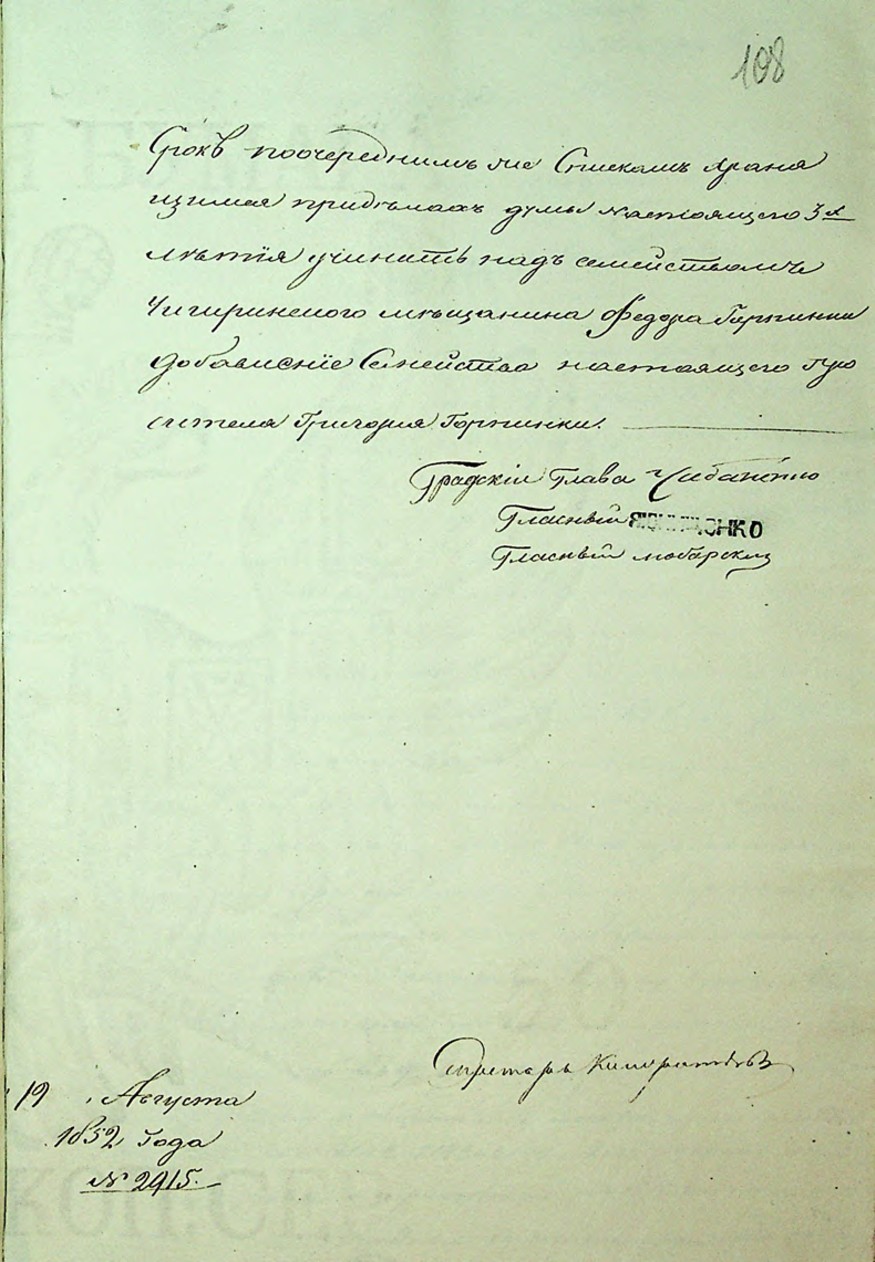 108
Срокъ поочереднимъ же Спискамъ храня
щимся придѣлахъ думы настоящего 3х
лѣтія учинить надъ семействомъ
Чигиринского мѣщанина Федора Горпинки
добавленіе Семейства настоящего про
сителя Григорія Горпинки.
Градскій Глава Чабаненко
Гласный
Гласный
Секретарь
19 Августа
1852 Года
№ 2915.